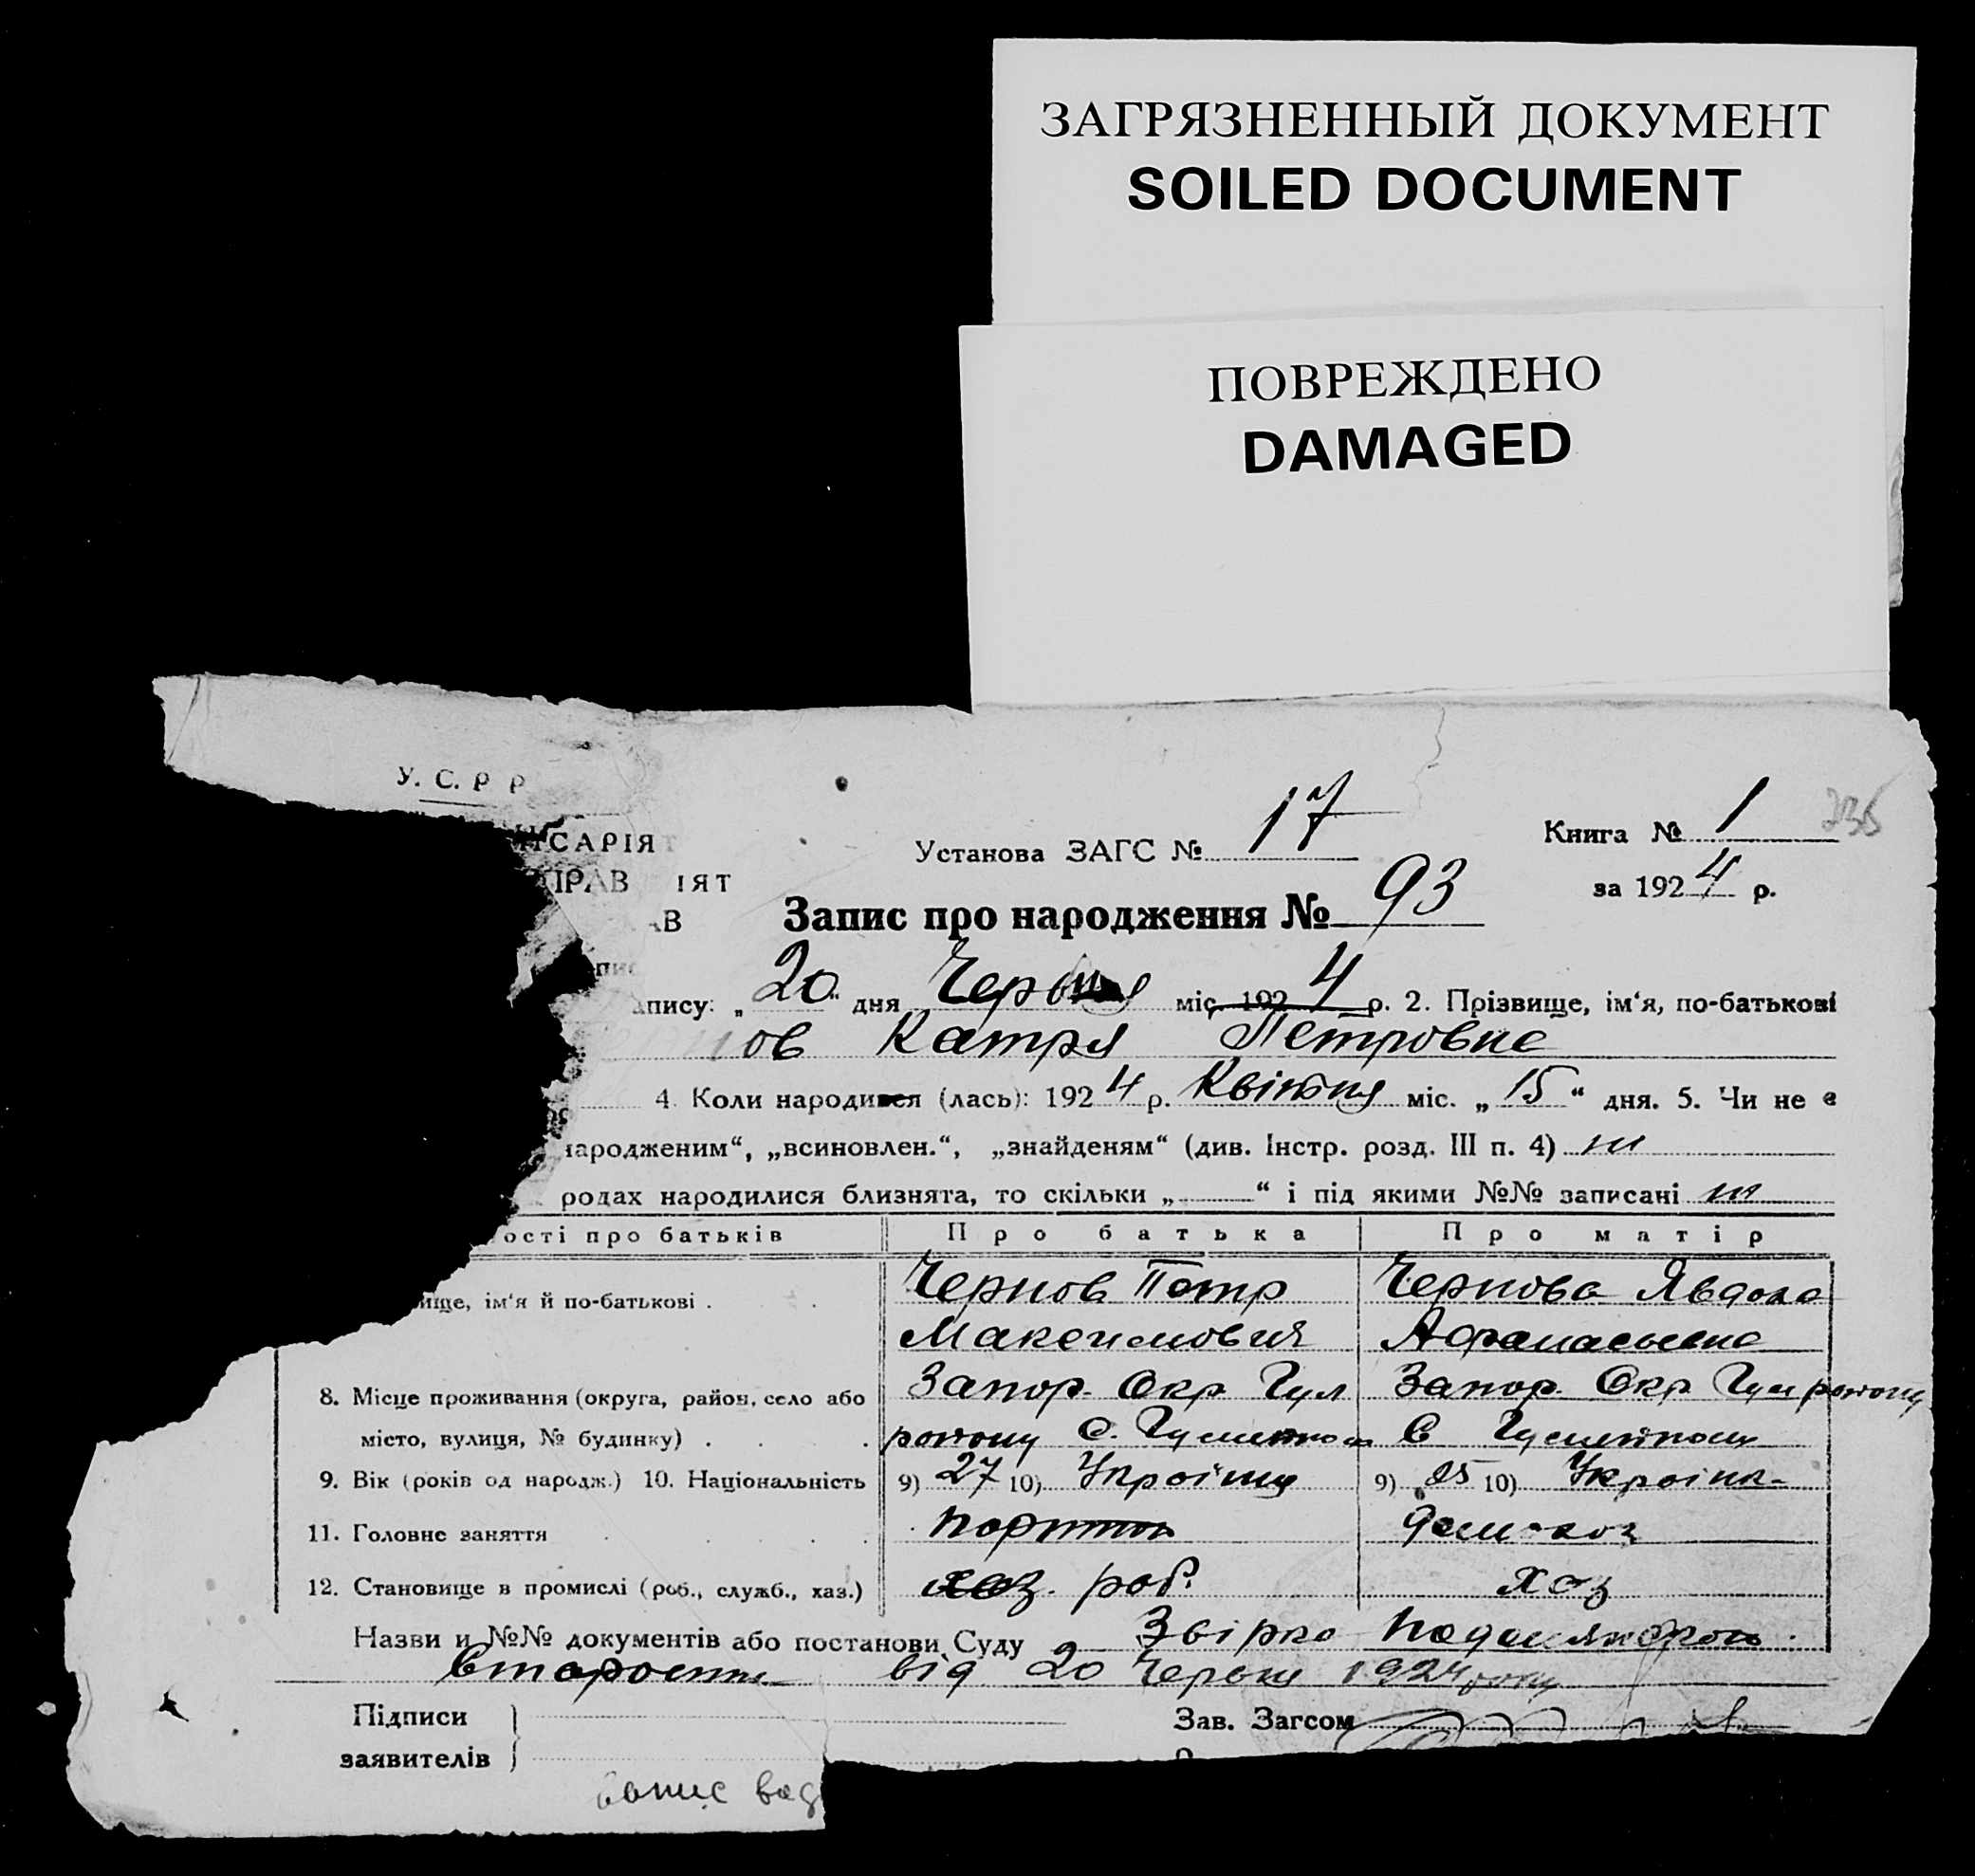 ЗАГРЯЗНЕННЫЙ ДОКУМЕНТ
SOILED DOCUMENT
ПОВРЕЖДЕНО
DAMAGED
У. С. Р Р
САРІЯТ
ПРАВ ІЯТ
АВ
Установа ЗАГС № 17
Книга № 1
за 1924 р.
Запис про народження № 93
апису: „20“ дня Червня міс. 1924 р. 2. Прізвище, ім‘я, по-батькові
нов Катря Петровна
4. Коли народився (лась): 1924 р. Квітня міс. „15“ дня. 5. Чи не є
народженим“, „всиновлен.“, „знайденям“ (див. Інстр. розд. III п. 4)
родах народилися близнята, то скільки „ “ і під якими №№ записані
ості про батьків Про батька Про матір
ище, ім‘я й по-батькові . Чернов Петр Чернова Явдоха
Максимович Афанасьевна
8. Місце проживання (округа, район, село або Запор. Окр. Гул Запор. Окр. Гул
місто, вулиця, № будинку) . с. С
9. Вік (років од народж.) 10. Національність 9) 27 10) 9) 25 10)
11. Головне заняття
12. Становище в промислі (роб., служб., хаз.) хоз. роб. хоз
Назви и №№ документів або постанови Суду
від 20 Червня 1924 року
Підписи
заявителів
Зав. Загсом